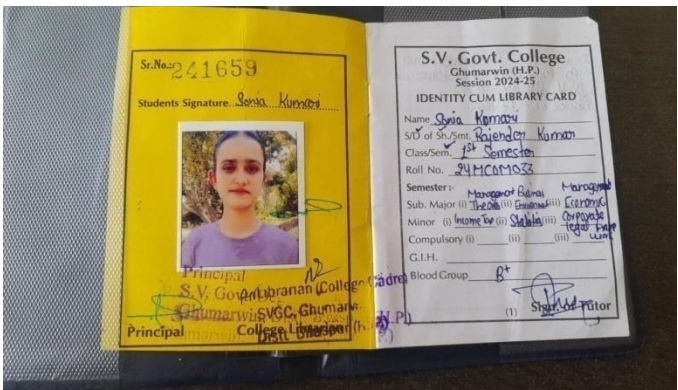 Sr.No.: 241659
Students Signature Sonia Kumari
Principal
S.V. Govt
Librarian (College Cadre)
SVGC, Ghumarwin
Distt. Bilaspur (H.P.)
Principal College Librarian
S.V. Govt. College
Ghumarwin (H.P.)
Session 2024-25
IDENTITY CUM LIBRARY CARD
Name Sonia Kumari
S/D of Sh./Smt. Rajender Kumar
Class/Sem. 1st Semester
Roll No. 24MCOM033
Semester:-
Management Business Management
Sub. Major (i) (ii) (iii) Economic
Minor (i) Income Tax (ii) (iii) Corporate
Compulsory (i) (ii) (iii)
G.I.H.
Blood Group B+
(1) Sign. of Tutor